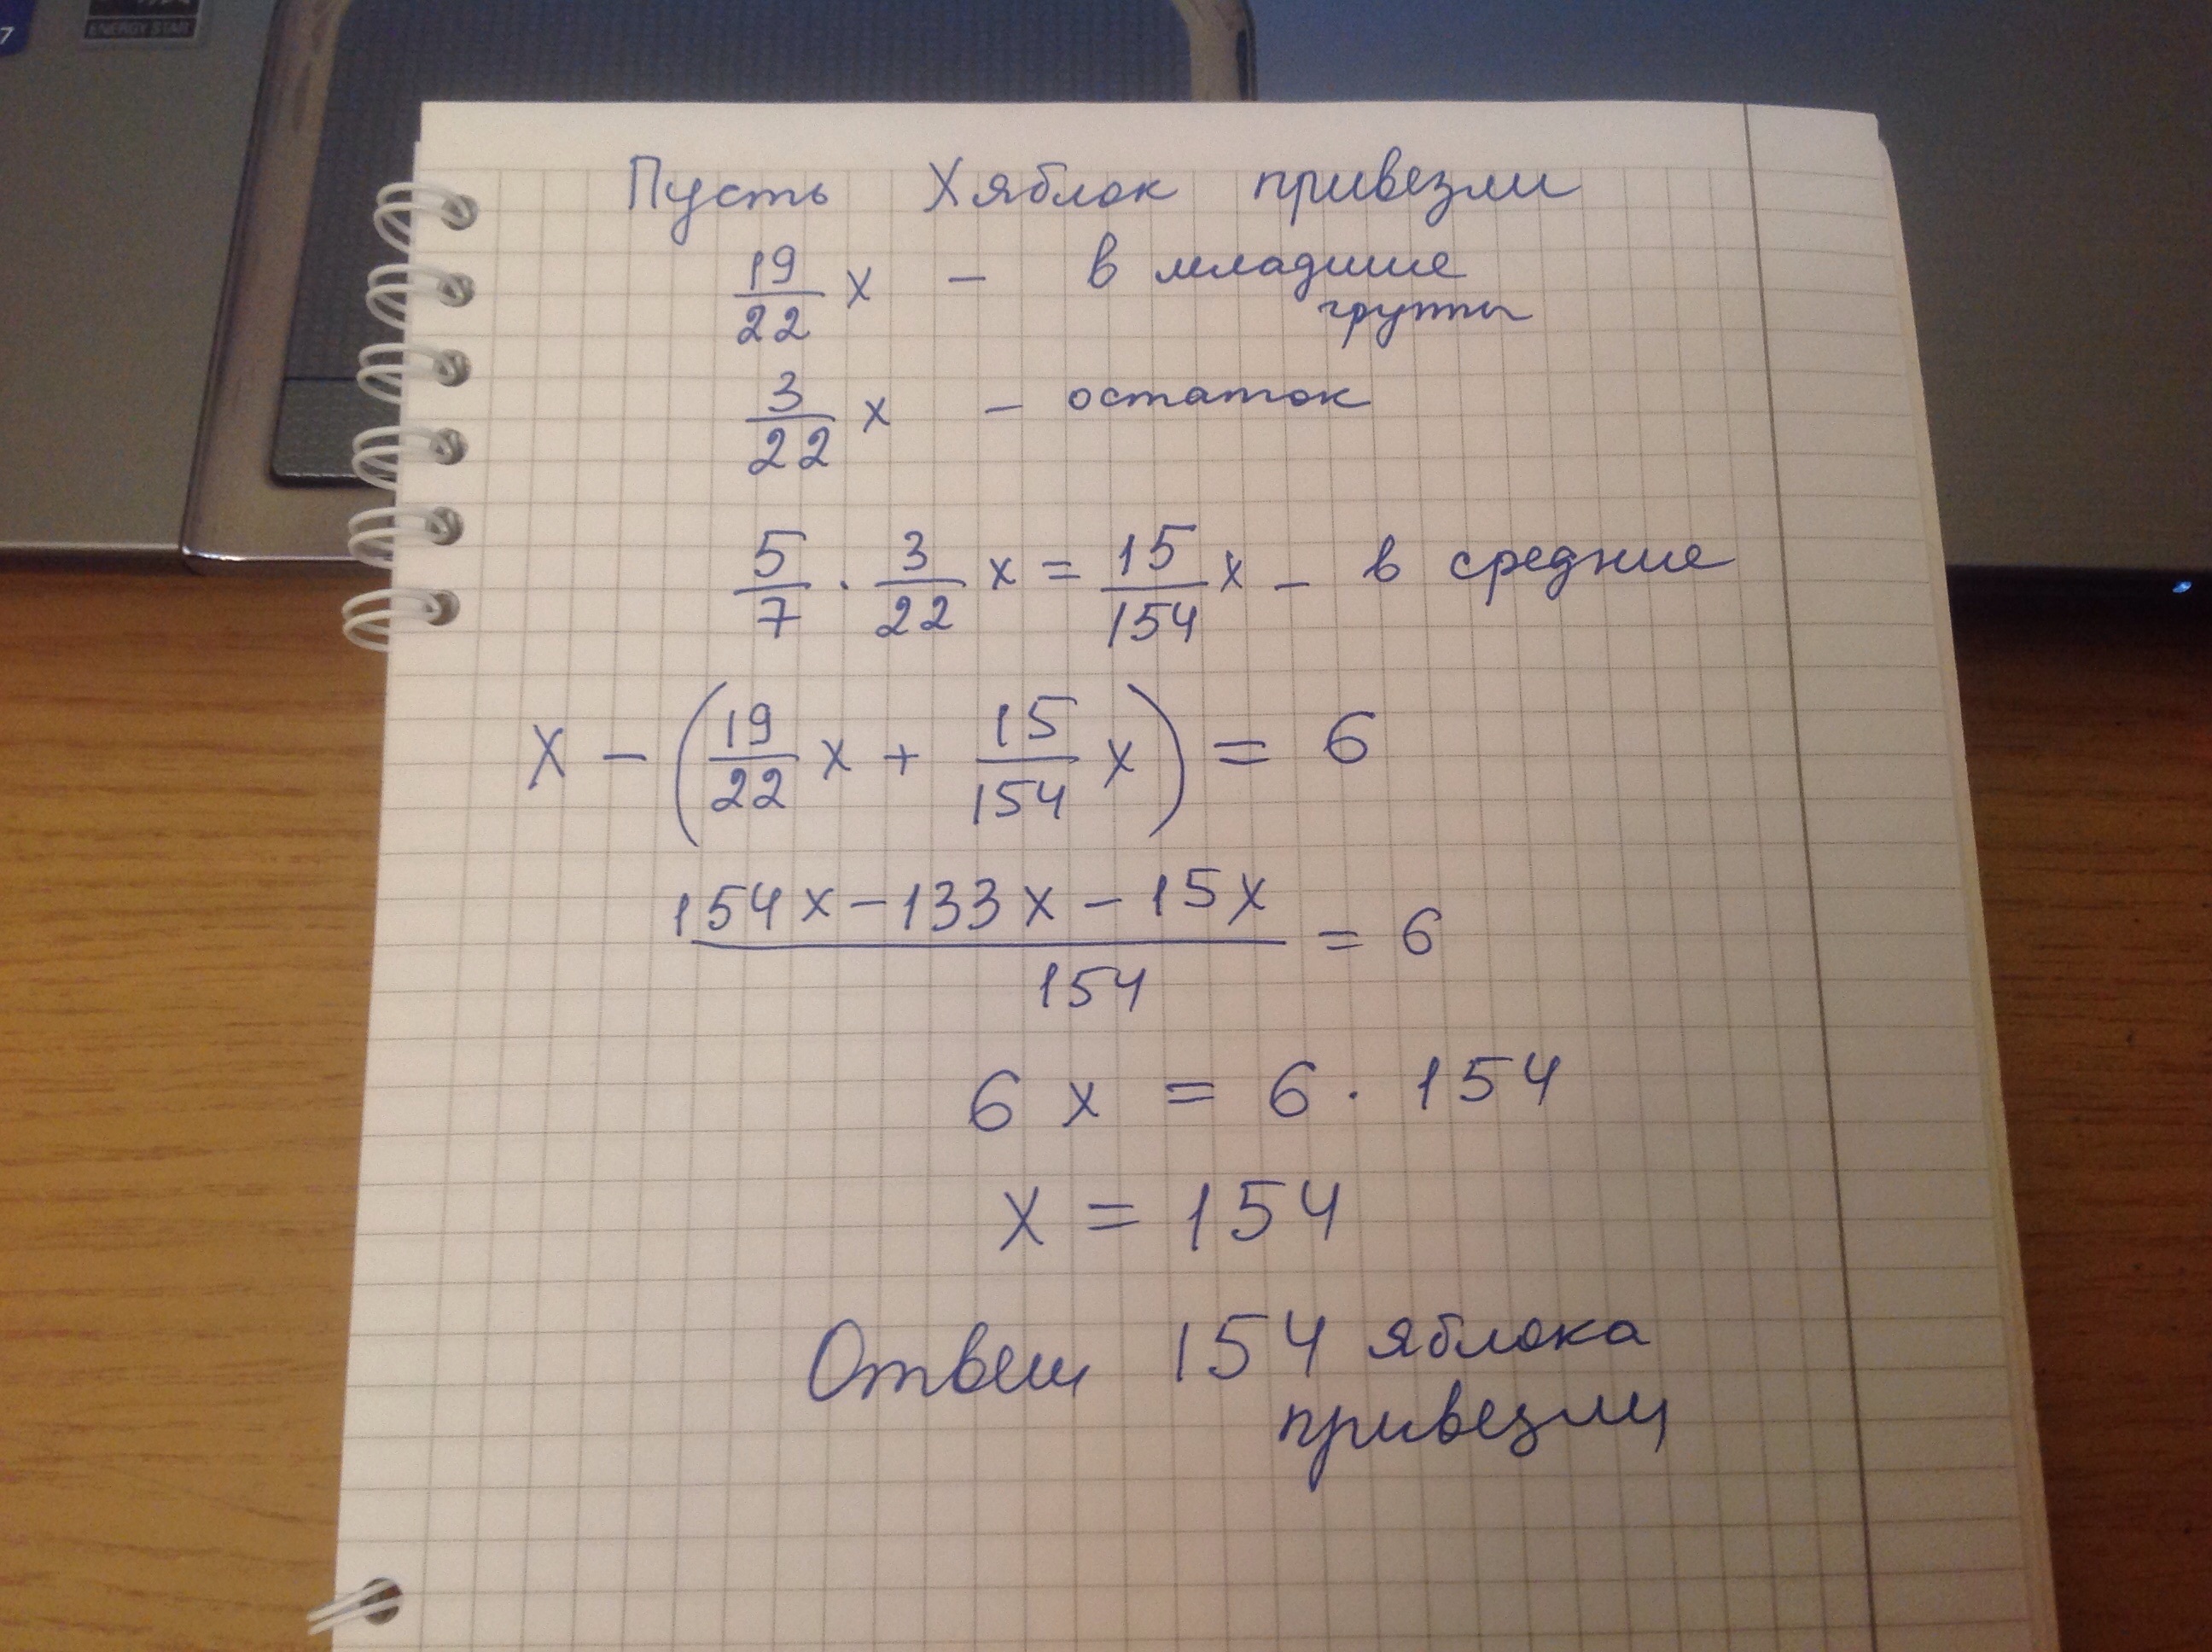 7
ENERGY STAR
Пусть X яблок привезли
19/22 x - в младшие
группы
3/22 x - остаток
5/7 · 3/22 x = 15/154 x - в средние
X - (19/22 x + 15/154 x) = 6
(154x - 133x - 15x)/154 = 6
6 x = 6 · 154
x = 154
Ответ 154 яблока
привезли